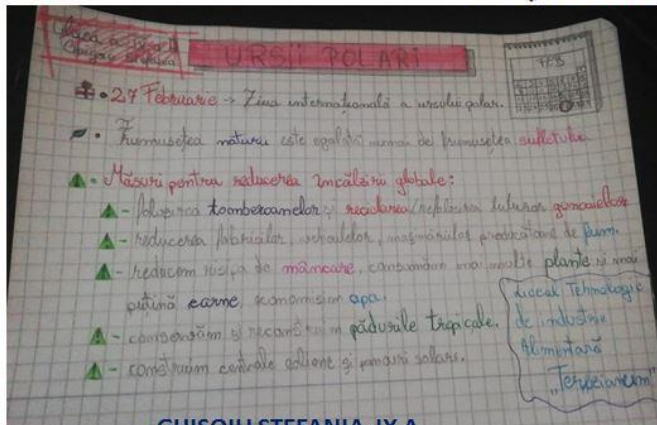 Clasa a IX-a A
Ghișoiu Ștefania
URSII POLARI
FEB
• 27 Februarie → Ziua internațională a ursului polar.
• Frumusețea naturii este egalată numai de frumusețea sufletului
• Măsuri pentru reducerea încălzirii globale:
- folosirea tomberoanelor și reciclarea/refolosirea tuturor gunoaielor
- reducerea fabricilor, vehiculelor, mașinăriilor producătoare de fum.
- reducem risipa de mâncare, consumăm mai multe plante și mai
puțină carne, economisim apa.
- conservăm și reconstruim pădurile tropicale.
- construim centrale eoliene și panouri solare.
Liceul Tehnologic
de industrie
Alimentară
„Terezianum"
GHISOIU STEFANIA, IX A